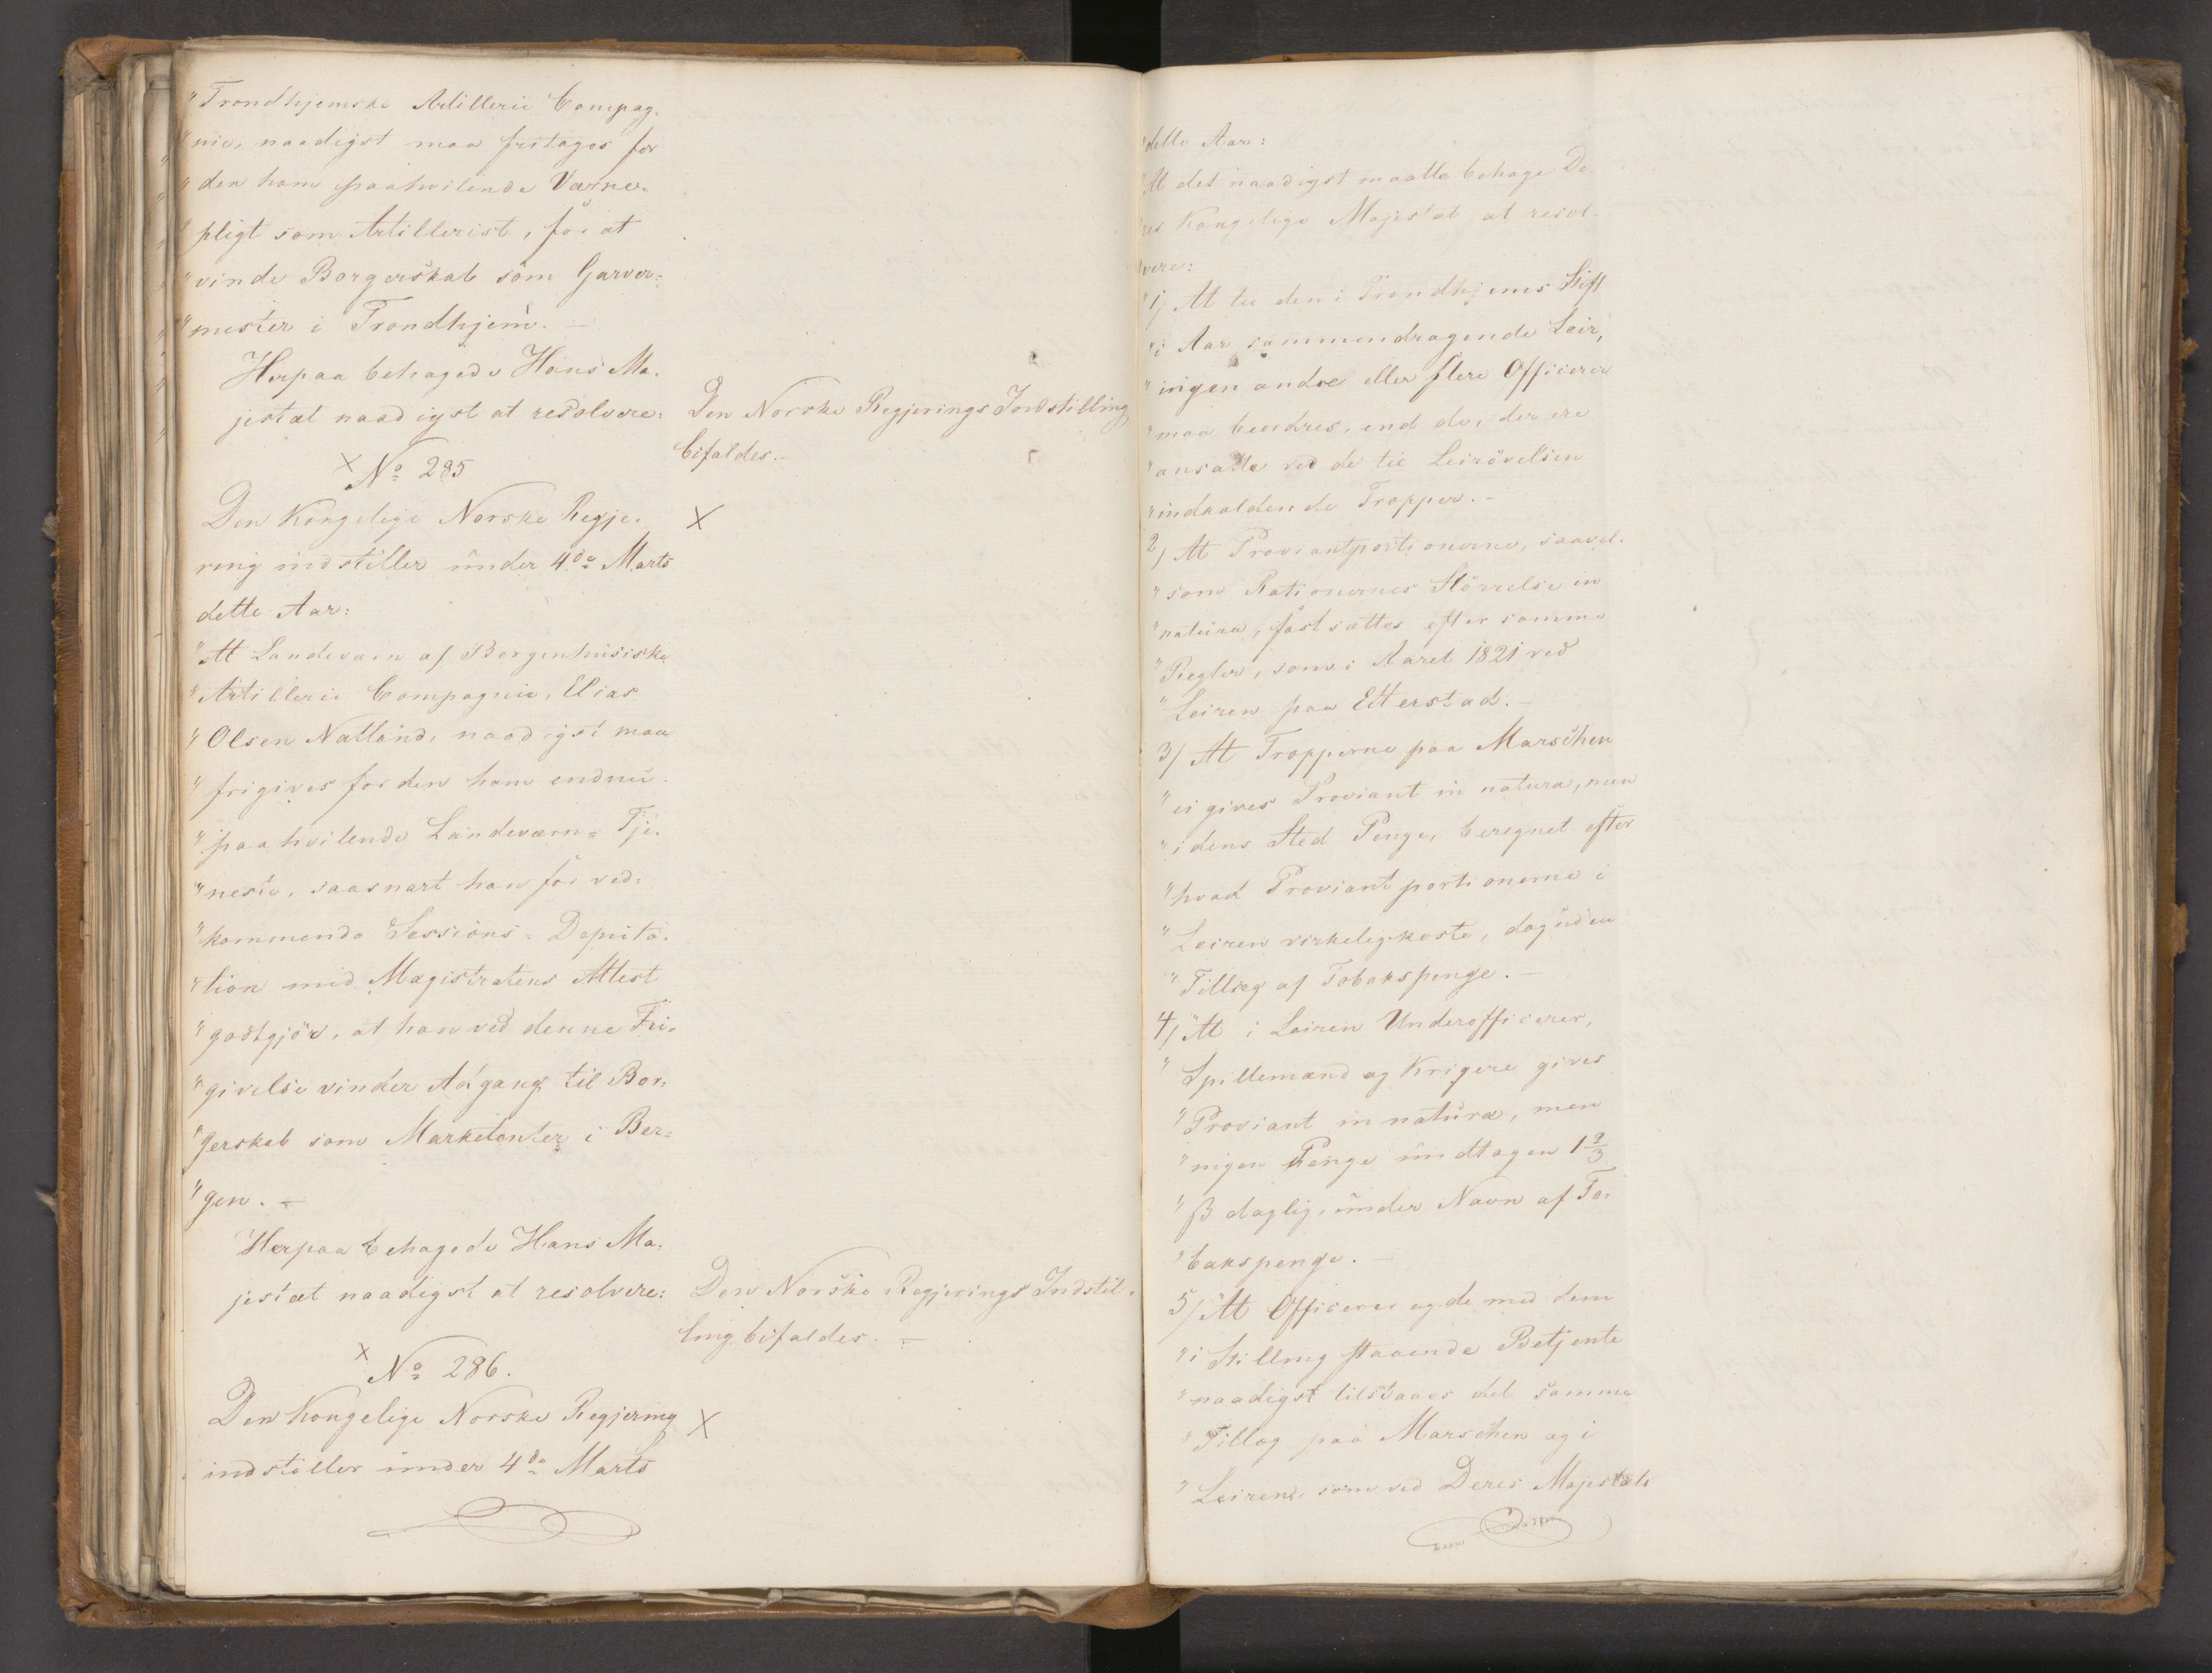 "Trondhjemske Artillerie Compag-
"nie, naadigst maa fritages for
"den ham paahvilende Værne-
"pligt som Artillerist, for at
"vinde Borgerskab som Garver-
"mester i Trondhjem. —
Herpaa behagede Hans Ma-
jestæt naadigst at resolvere:
Den Norske Regjerings Indstilling
bifaldes. —
× No 285
Den Kongelige Norske Regje-
ring indstiller under 4de Marts
dette Aar:
×
"At Landeværn af Bergenhusiske
"Artillerie Compagnie, Elias
"Olsen Natland, naadigst maa
"frigives for den ham endnu
"paahvilende Landeværn-Tje-
"neste, saasnart han for ved-
"kommende Sessions-Deputa-
"tion med Magistratens Attest
"godtgjör, at han ved denne Fri-
"givelse vinder Adgang til Bor-
"gerskab som Marketenter i Ber-
"gen. —
Herpaa behagede Hans Ma-
jestæt naadigst at resolvere:
Den Norske Regjerings Indstil-
ling bifaldes. —
× No 286.
Den Kongelige Norske Regjering
indstiller under 4de Marts
×
"dette Aar:
"At det naadigst maatte behage De-
res Kongelige Majestæt at resol-
"vere:
"1/ At til den i Trondhjems Stift
"i Aar sammendragende Leir,
"ingen andre eller flere Officerer
"maa beordres, end de, der ere
"ansatte ved de til Leirövelsen
"indkaldende Tropper. —
2/ At Proviantportionerne, saavel-
"som Rationernes Störrelse in
"natura, fastsættes efter samme
"Regler, som i Aaret 1821 ved
"Leiren paa Etterstad. —
3/ At Tropperne paa Marschen
"ei gives Proviant in natura, men
"i dens Sted Penge, beregnet efter
"hvad Proviantportionerne i
"Leiren virkelig koste, dog uden
"Tillæg af Tobakspenge. —
4/ At i Leiren Underofficerer,
"Spillemænd og Krigere gives
"Proviant in natura, men
"ingen Penge undtagen 1 2/3
"ß daglig, under Navn af To-
"bakspenge. —
5/ At Officerer og de med dem
"i Stilling staaende Betjente
"naadigst tilstaaes det samme
"Tillæg paa Marschen og i
"Leiren, som ved Deres Majestæts